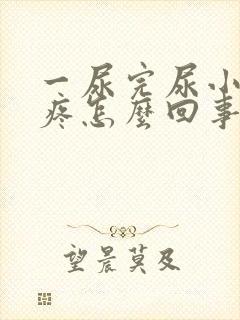 一尿完尿小
疼怎麼回事
望晨莫及